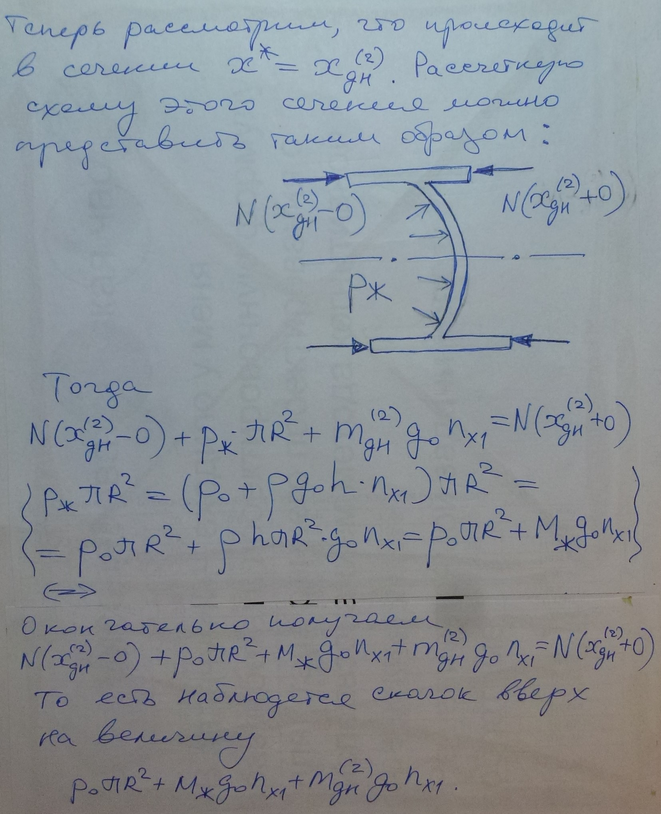 Теперь рассмотрим, что происходит
в сечении x* = x_дн^(2). Рассчетную
схему этого сечения можно
представить таким образом:
N(x_дн^(2)-0) N(x_дн^(2)+0)
pж
Тогда
N(x_дн^(2)-0) + p_ж·πR² + m_дн^(2) g₀ n_x1 = N(x_дн^(2)+0)
{ p_ж πR² = (p₀ + ρg₀h·n_x1)πR² =
= p₀πR² + ρhπR²·g₀n_x1 = p₀πR² + M_ж g₀n_x1 }
⟺
Окончательно получаем
N(x_дн^(2)-0) + p₀πR² + M_ж g₀ n_x1 + m_дн^(2) g₀ n_x1 = N(x_дн^(2)+0)
То есть наблюдется скачок вверх
на величину
p₀πR² + M_ж g₀ n_x1 + m_дн^(2) g₀ n_x1.